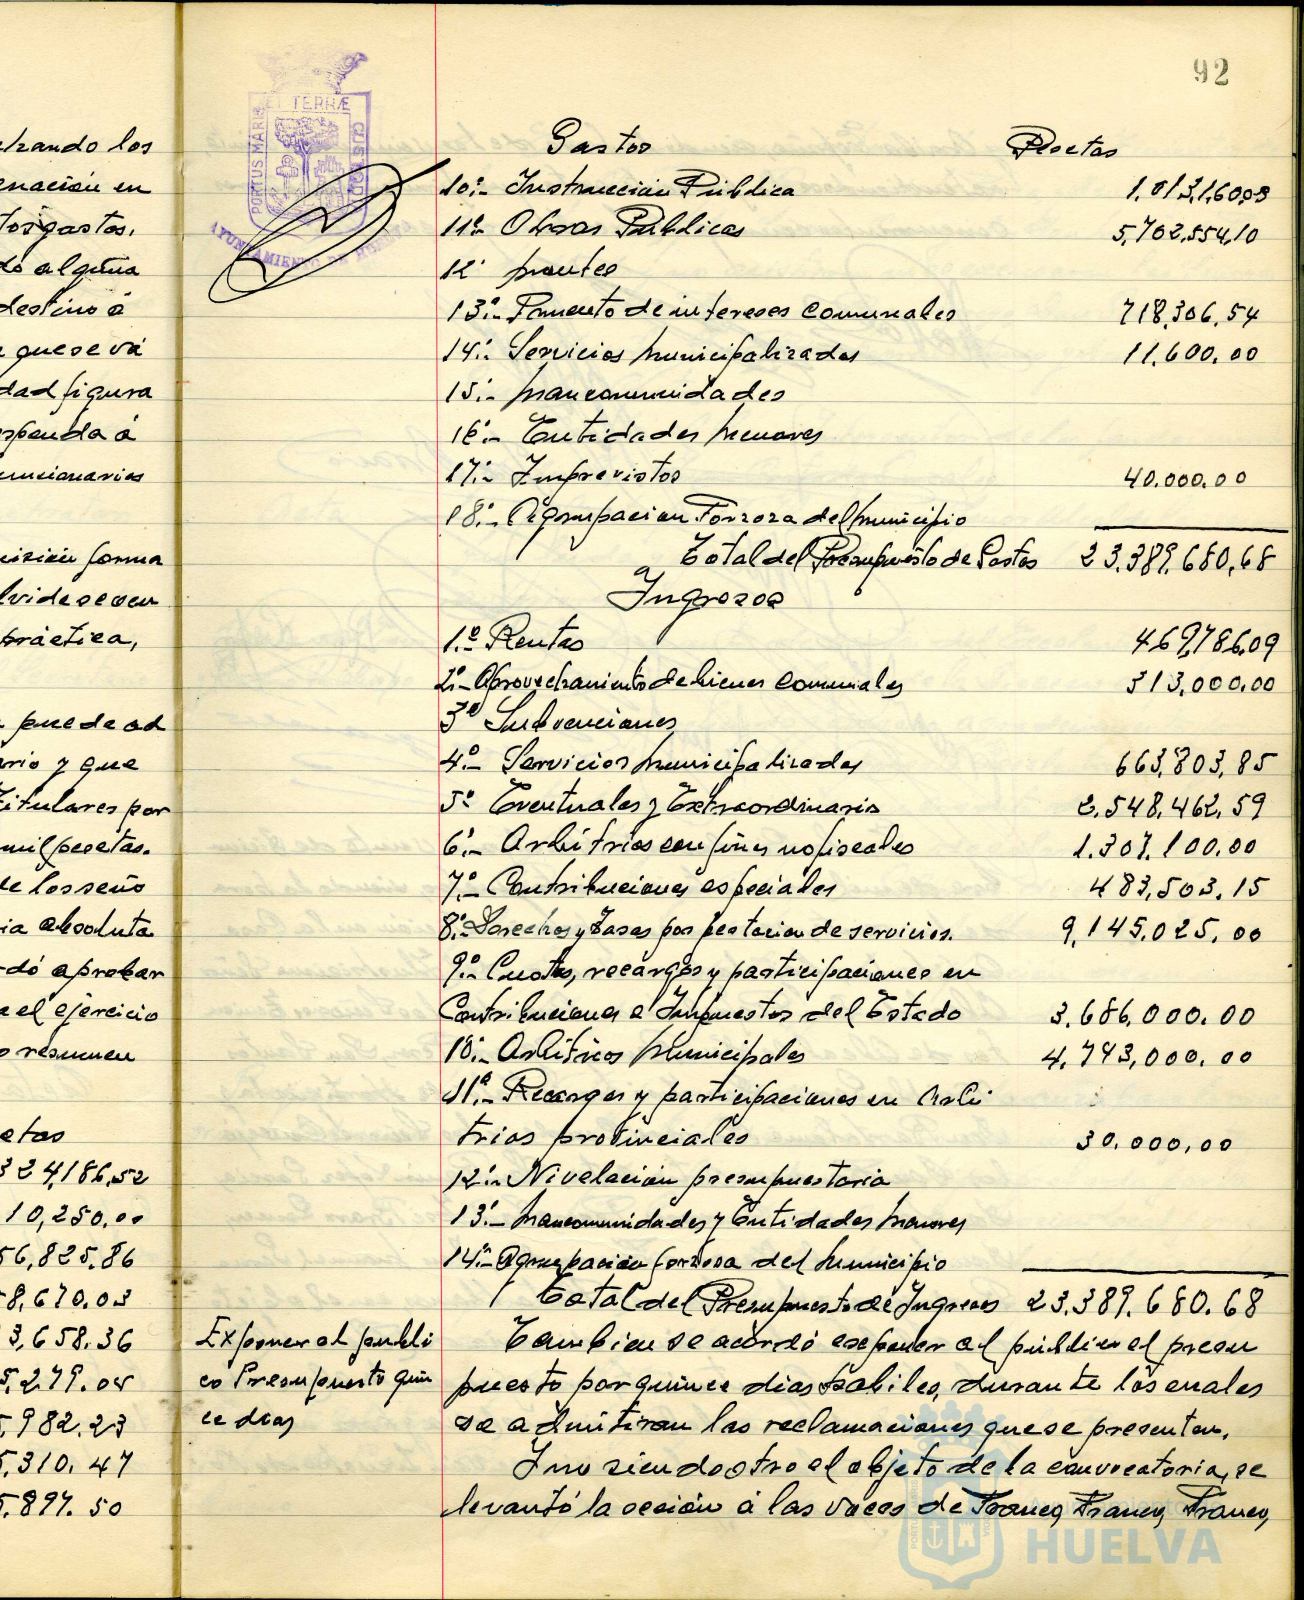 92
lizando los
enación en
tos gastos.
do alguna
destino á
que se vá
dad figura
esponda á
uncionarios
misión forma
lvide se oeu
práctica,
puede ad
ario y que
Titulares por
mil pesetas.
de los seño
ia absoluta
rdó aprobar
a el ejercicio
o resumen
etas
324,186,52
10,250.00
56,825.86
8,670.03
3,658.36
5,279.05
5,982.23
5,310.47
5.897.50
PORTUS MARIS ET TERRÆ CUSTOD
AYUNTAMIENTO DE HUELVA
Gastos Pesetas
10º.- Instrucción Pública 1.013,160,03
11º- Obras Públicas 5,702,554,10
12º montes
13º.- Fomento de intereses comunales 718,306,54
14º.- Servicios municipalizados 11,600.00
15º.- mancomunidades
16º.- Entidades menores
17º.- Imprevistos 40.000.00
18º.- Agrupacion Forzoza del municipio
Total del Presupuesto de Gastos 23,389,680,68
Ingresos
1.º Rentas 469,786,09
2º.- Aprovechamiento de bienes comunales 313,000.00
3º Subvenciones
4º.- Servicios municipalizados 663,803,85
5º Eventuales y Extraordinario 2.548,462,59
6º.- Arbitrios con fines no fiscales 1.307,100.00
7º.- Contribuciones especiales 483,503.15
8º.- Derechos y Tasas por prestacion de servicios. 9,145,025.00
9º.- Cuotas, recargos y participaciones en
Contribuciones e Impuestos del Estado 3.686,000.00
10º.- Arbitrios Municipales 4.743,000.00
11º.- Recargos y participaciones en Arbi
trios provinciales 30.000,00
12º.- Nivelación presupuestaria
13º.- Mancomunidades y Entidades menores
14º.- Agrupación forzosa del municipio
Total del Presupuesto de Ingresos 23.389.680.68
Exponer al publi
co Presupuesto quin
ce dias
Tambien se acordó exponer al público el presu
puesto por quince dias habiles, durante los cuales
se admitiran las reclamaciones que se presenten.
Y no siendo otro el objeto de la convocatoria, se
levantó la seción á las voces de Franco, Franco, Franco,
HUELVA